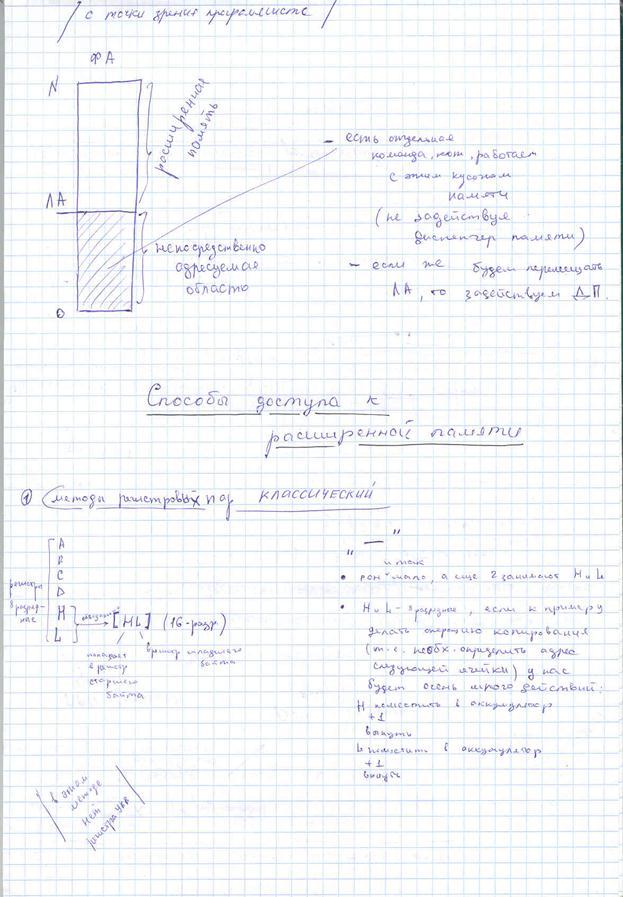 с точки зрения программиста
ФА
N
расширенная
память
ЛА
непосредственно
адресуемая
область
0
- есть отдельная
команда, кот. работает
с этим куском
памяти
(не задействуя
диспетчер памяти)
- если же будем перемещать
ЛА, то задействуем ДП.
Способы доступа к
расширенной памяти
① методы регистровых пар КЛАССИЧЕСКИЙ
A
B
C
D
H
L
регистры
8 разряд-
ные
[HL] (16-разр)
попадает
в регистр
старшего
байта
в регистр младшего
байта
" — "
и так
• рон "мало, а еще 2 занимают H и L
• H и L - 8 разрядные, если к примеру
делать операцию копирования
(т.е. необх. определить адрес
следующей ячейки) у нас
будет очень много действий:
H поместить в аккумулятор
+1
вынуть
L поместить в аккумулятор
+1
вынуть
в этом
методе
нет
регистра